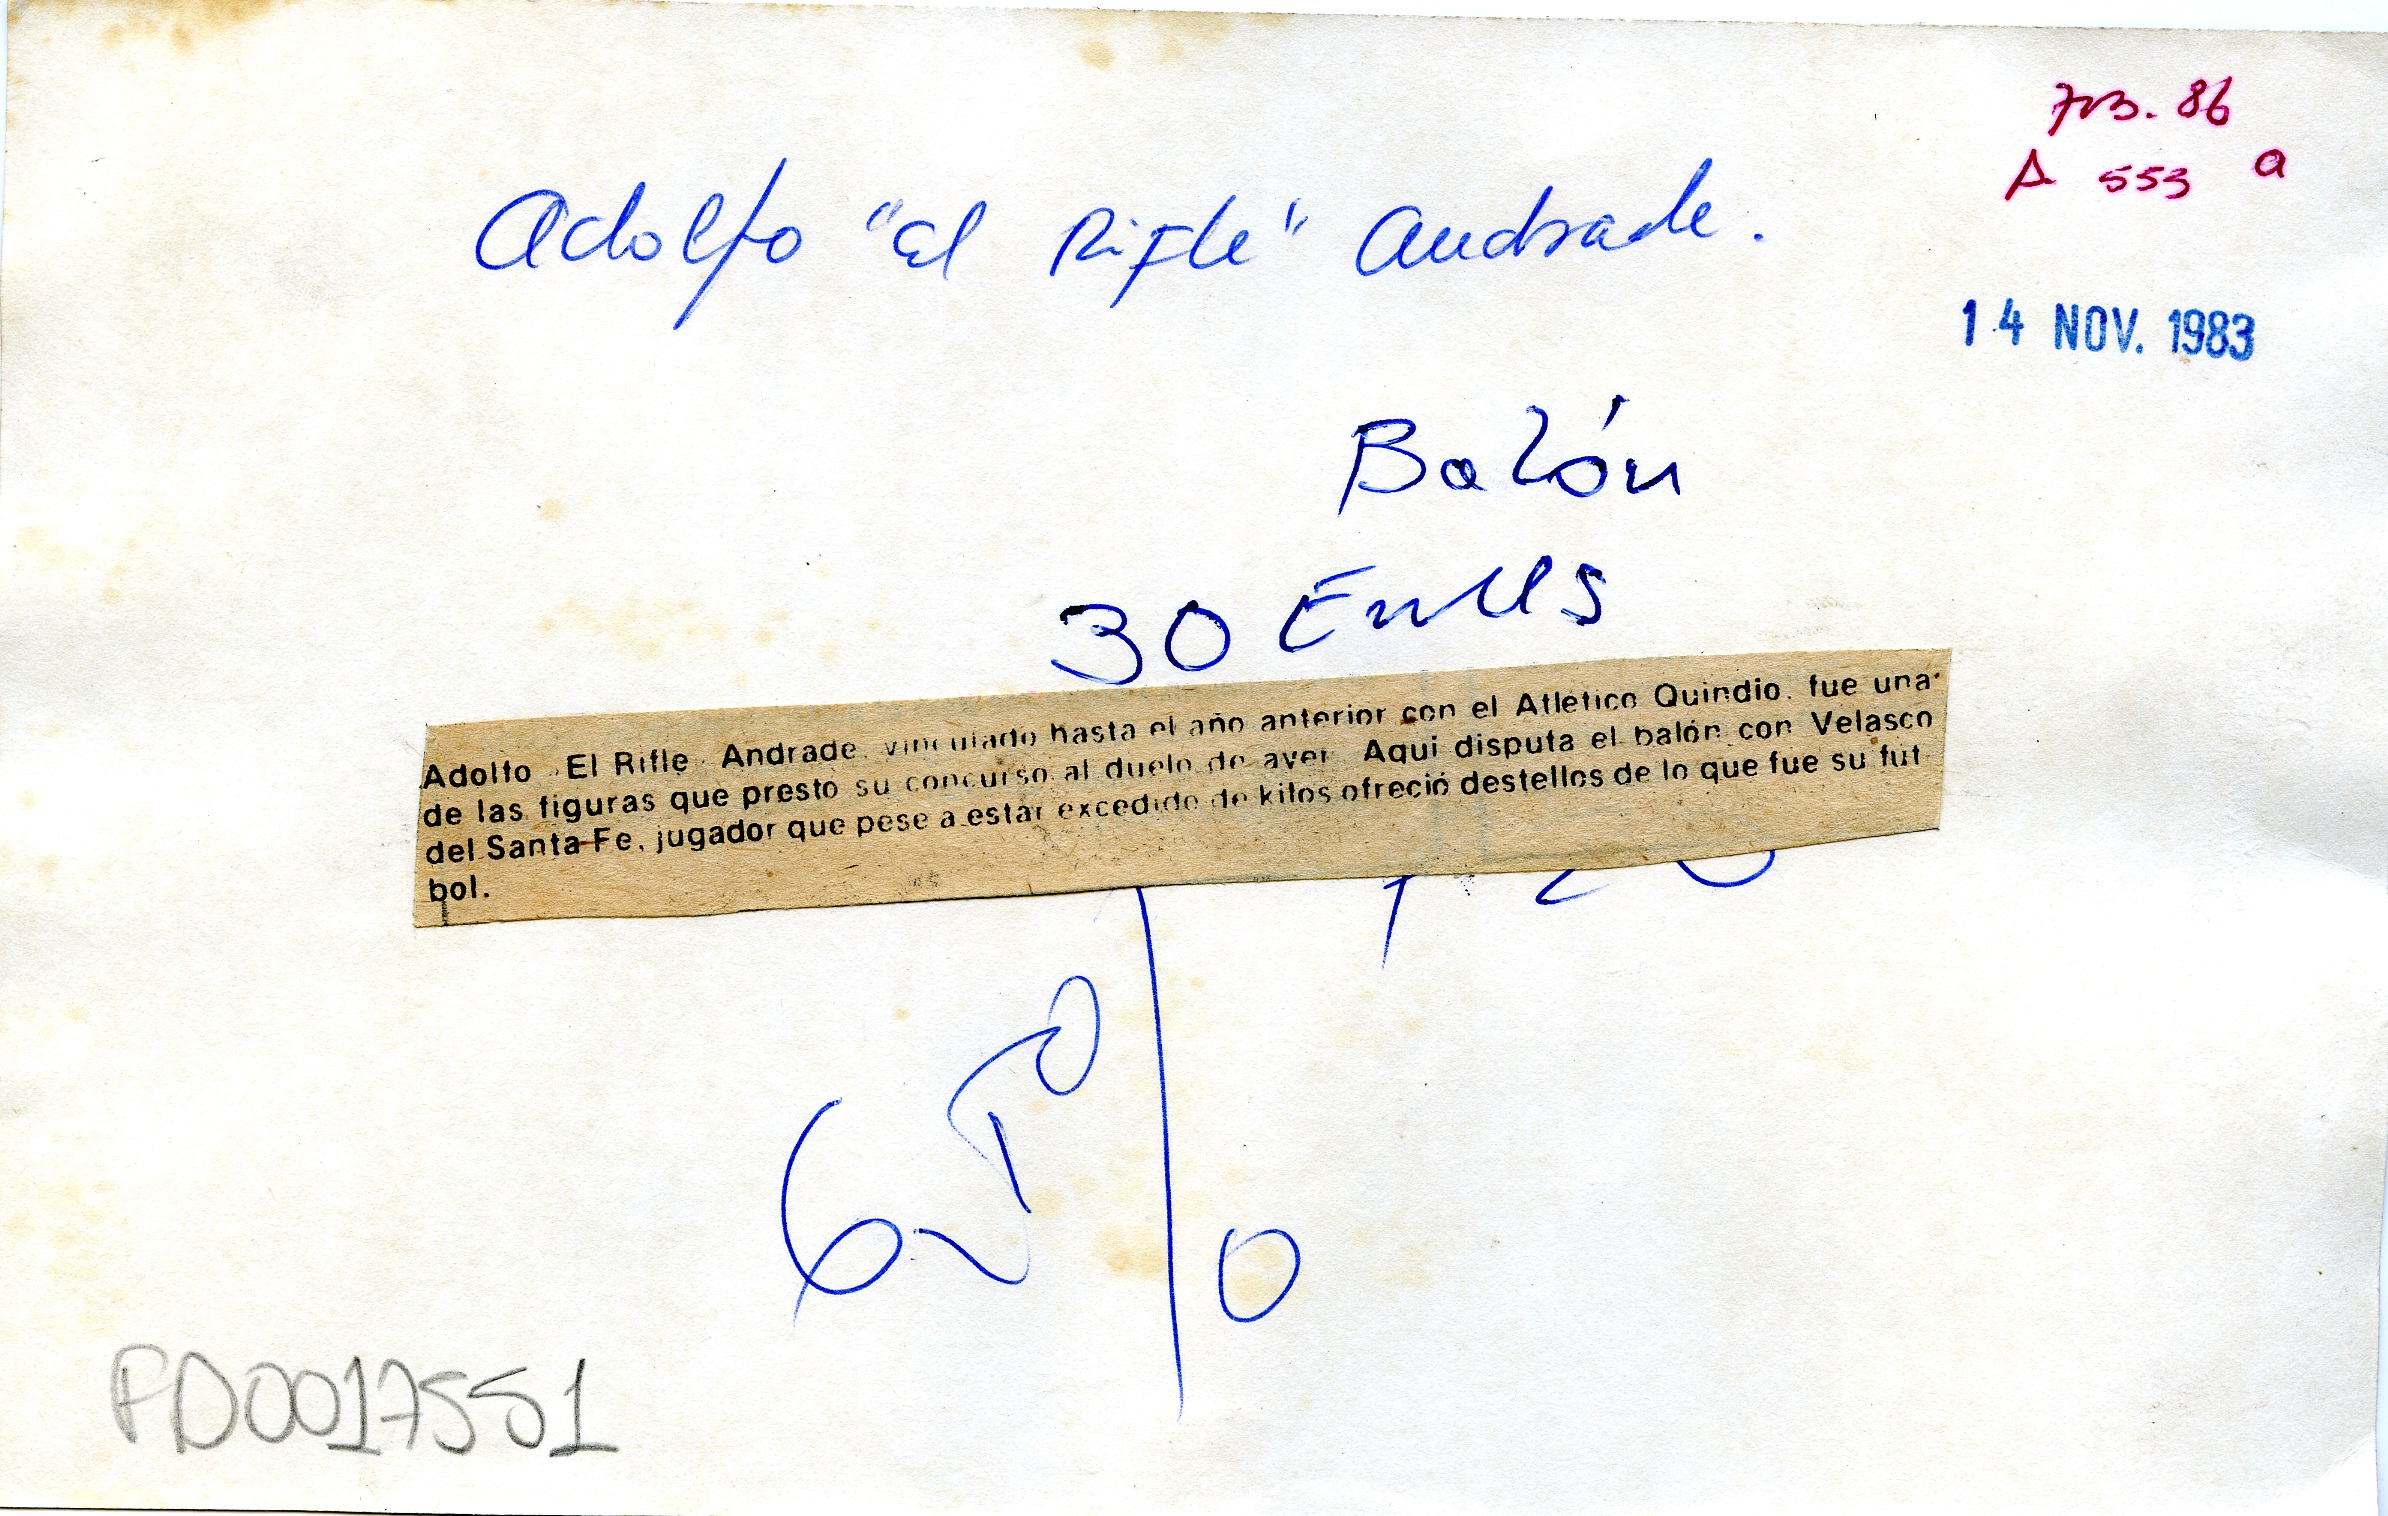 713.86
A 553 a
Adolfo "El Rifle" Andrade.
14 NOV. 1983
Balón
30 Emes
Adolfo El Rifle Andrade, vinculado hasta el año anterior con el Atlético Quindio, fue una
de las figuras que presto su concurso al duelo de ayer Aqui disputa el balón con Velasco
del Santa Fe, jugador que pese a estar excedido de kilos ofreció destellos de lo que fue su fut
bol.
FD0017551